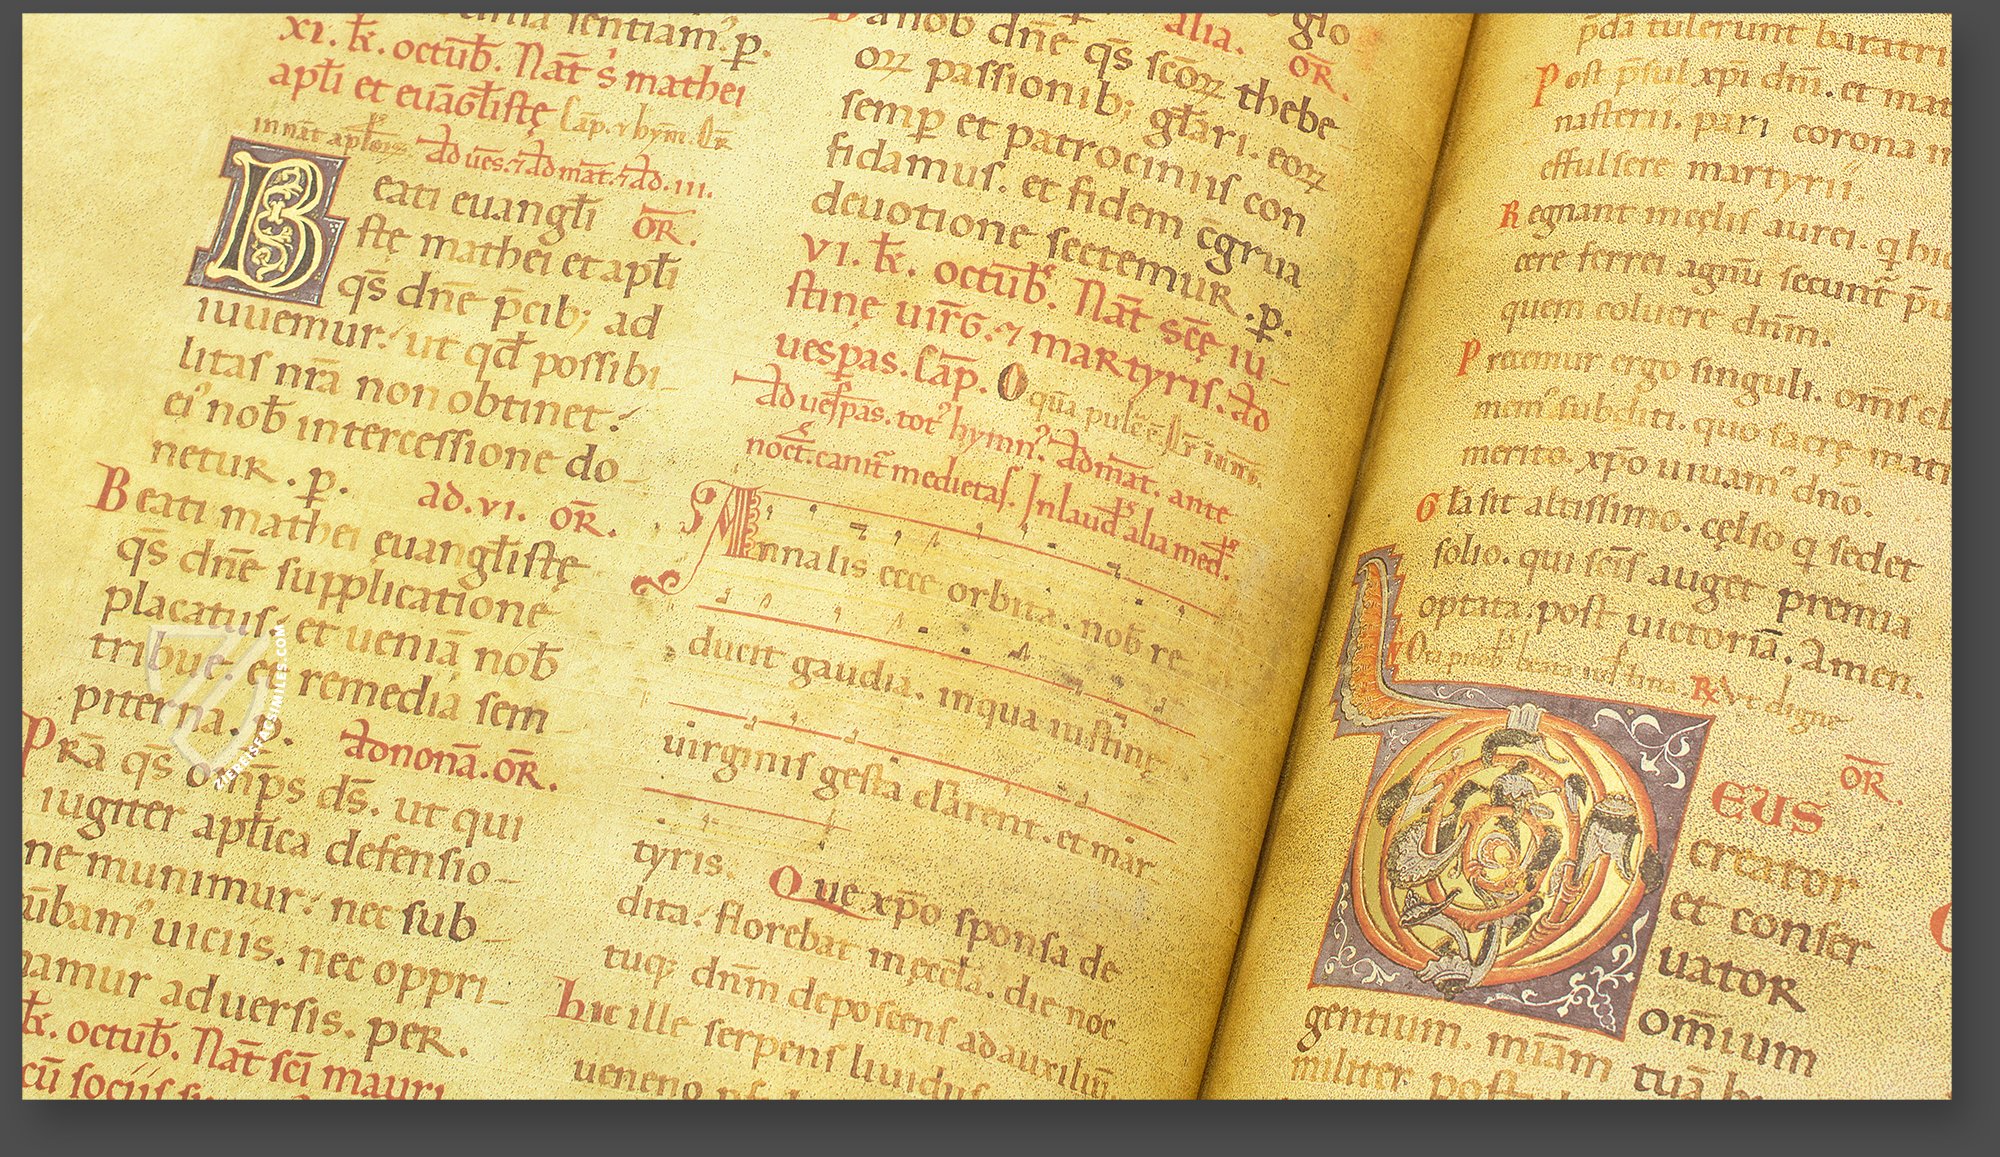 sentiam. p.
xi. k̄. octub̄. Nat̄ s̄ mathei
apl̄i et euāgl̄istę Cap. ⁊ hym̄.
in nat̄ apl̄oꝝ. Ad ues. ⁊ Ad mat̄. ⁊ Ad. iii.
Beati euangl̄i OR̄.
stę mathei et apl̄i
qs̄ dn̄e p̄cib; ad
iuuemur. ut qd̄ possibi-
litas nr̄a non obtinet.
ei' nob̄ intercessione do-
netur. p. ad. vi. OR̄.
Beati mathei euangl̄istę
qs̄ dn̄e supplicatione
placatus. et ueniā nob̄
tribue. et remedia sem
piterna. p. Ad nonā. OR̄.
Prā qs̄ omp̄s ds̄. ut qui
iugiter apl̄ica defensio-
ne munimur. nec sub-
cūbam' uiciis. nec oppri-
mamur aduersis. per.
k̄. octub̄. Nat̄ sc̄i mauri
cū sociis
nob dn̄e qs̄ sc̄oꝝ thebe alia. glo OR̄.
oꝝ passionib; gl̄ari. eoꝝ
semp et patrociniis con
fidamus. et fidem c̄grua
deuotione sectemur. p.
VI. k̄. octub̄. Nat̄ sc̄ę iu-
stinę uirg. ⁊ martyris. Ad
uespas. Cap. O qua pulc
Ad uespas. tot' hymn'. Ad mat̄. ante
noct̄. canit̄ medietas. In laud̄ alia med.
Annalis ecce orbita. nob̄ re
ducit gaudia. in qua iustinę
uirginis gesta clarent. et mar
tyris. Que xp̄o sponsa de
dita. florebat in ęccl̄a. die noc-
tuq; dn̄m deposcens ad auxiliū.
Hic ille serpens liuidus
ueneno
p̄da tulerunt baratri
Post p̄sul xp̄i dn̄i. et mat
nasterii. pari corona
effulsere martyrii.
Regnant in cęlis aurei. q hic
cere ferrei agnū secunt̄
quem coluere dn̄m.
Precemur ergo singuli. om̄s
mem' subditi. quo sacrę
merito. xp̄o uiuam' dn̄o.
Gl̄a sit altissimo. cęlso q sedet
solio. qui sc̄is auget premia
optata. post uictoriā. Amen.
Ora p nob̄ beata iustina. R̄ Vt digne
OR̄.
DEUS
creator
et conser
uator
om̄ium
gentium. miā̄m tuā
militer post
ZIEREIS FACSIMILES.COM